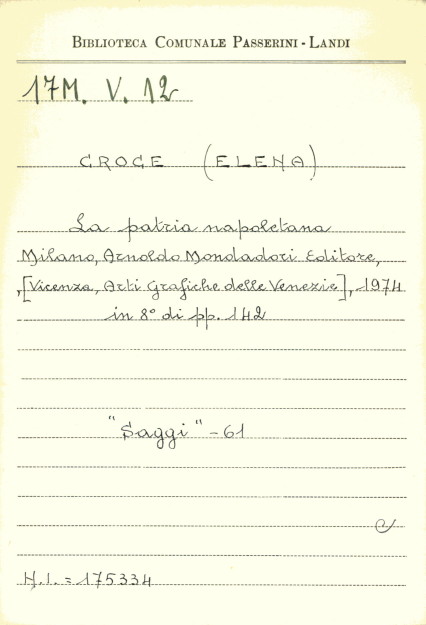 BIBLIOTECA COMUNALE PASSERINI - LANDI
17M. V. 12
CROCE (ELENA)
La patria napoletana
Milano, Arnoldo Mondadori Editore,
,[Vicenza, Arti Grafiche delle Venezie], 1974
in 8° di pp. 142
"Saggi" - 61
N.I. = 175334